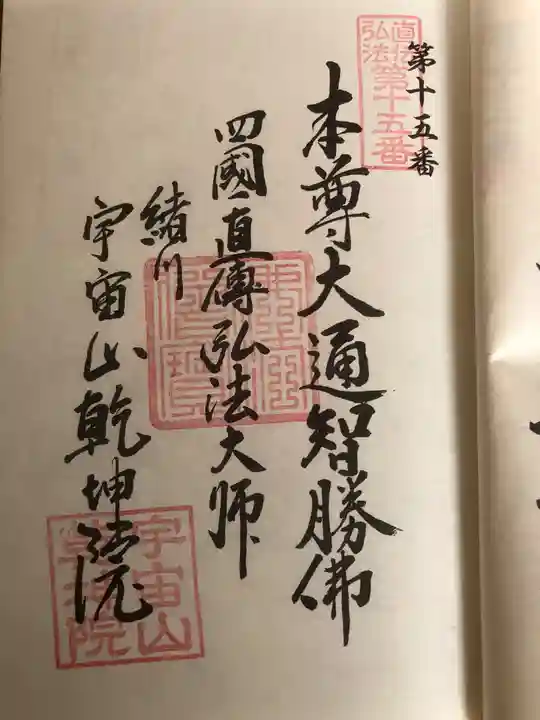 直伝
弘法
第十五番
第十五番
本尊大通智勝佛
四國直傳弘法大师
緒川
宇宙山乾坤院
宇宙山
乾坤院